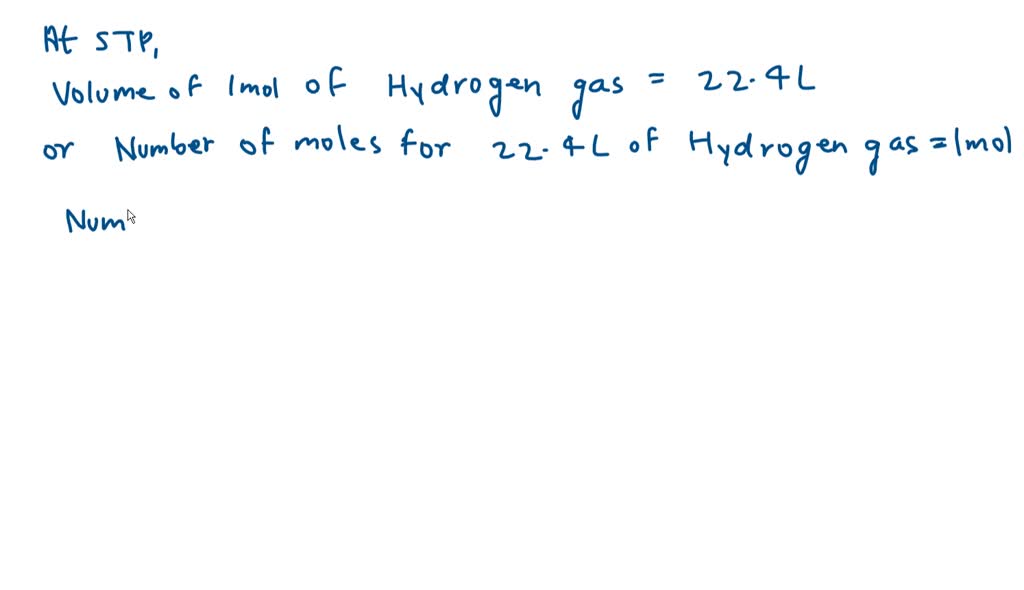 At STP,
Volume of 1mol of Hydrogen gas = 22.4L
or Number of moles for 22.4L of Hydrogen gas = 1mol
Num